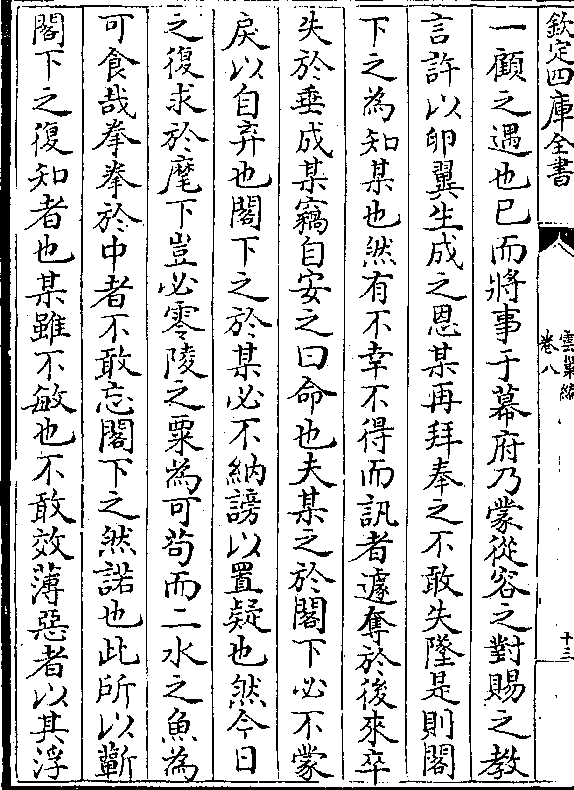 欽定四庫全書
雲巢編
卷八
十三
一顧之遇也已而將事于幕府乃蒙從容之對賜之教
言許以卵翼生成之恩某再拜奉之不敢失墜是則閣
下之為知某也然有不幸不得而訊者遽奪於後來卒
失於垂成某竊自安之曰命也夫某之於閣下必不蒙
戾以自弃也閣下之於某必不納謗以置疑也然今日
之復求於麾下豈必零陵之粟為可茍而二水之魚為
可食哉拳拳於中者不敢忘閣下之然諾也此所以蘄
閣下之復知者也某雖不敏也不敢效薄惡者以其浮